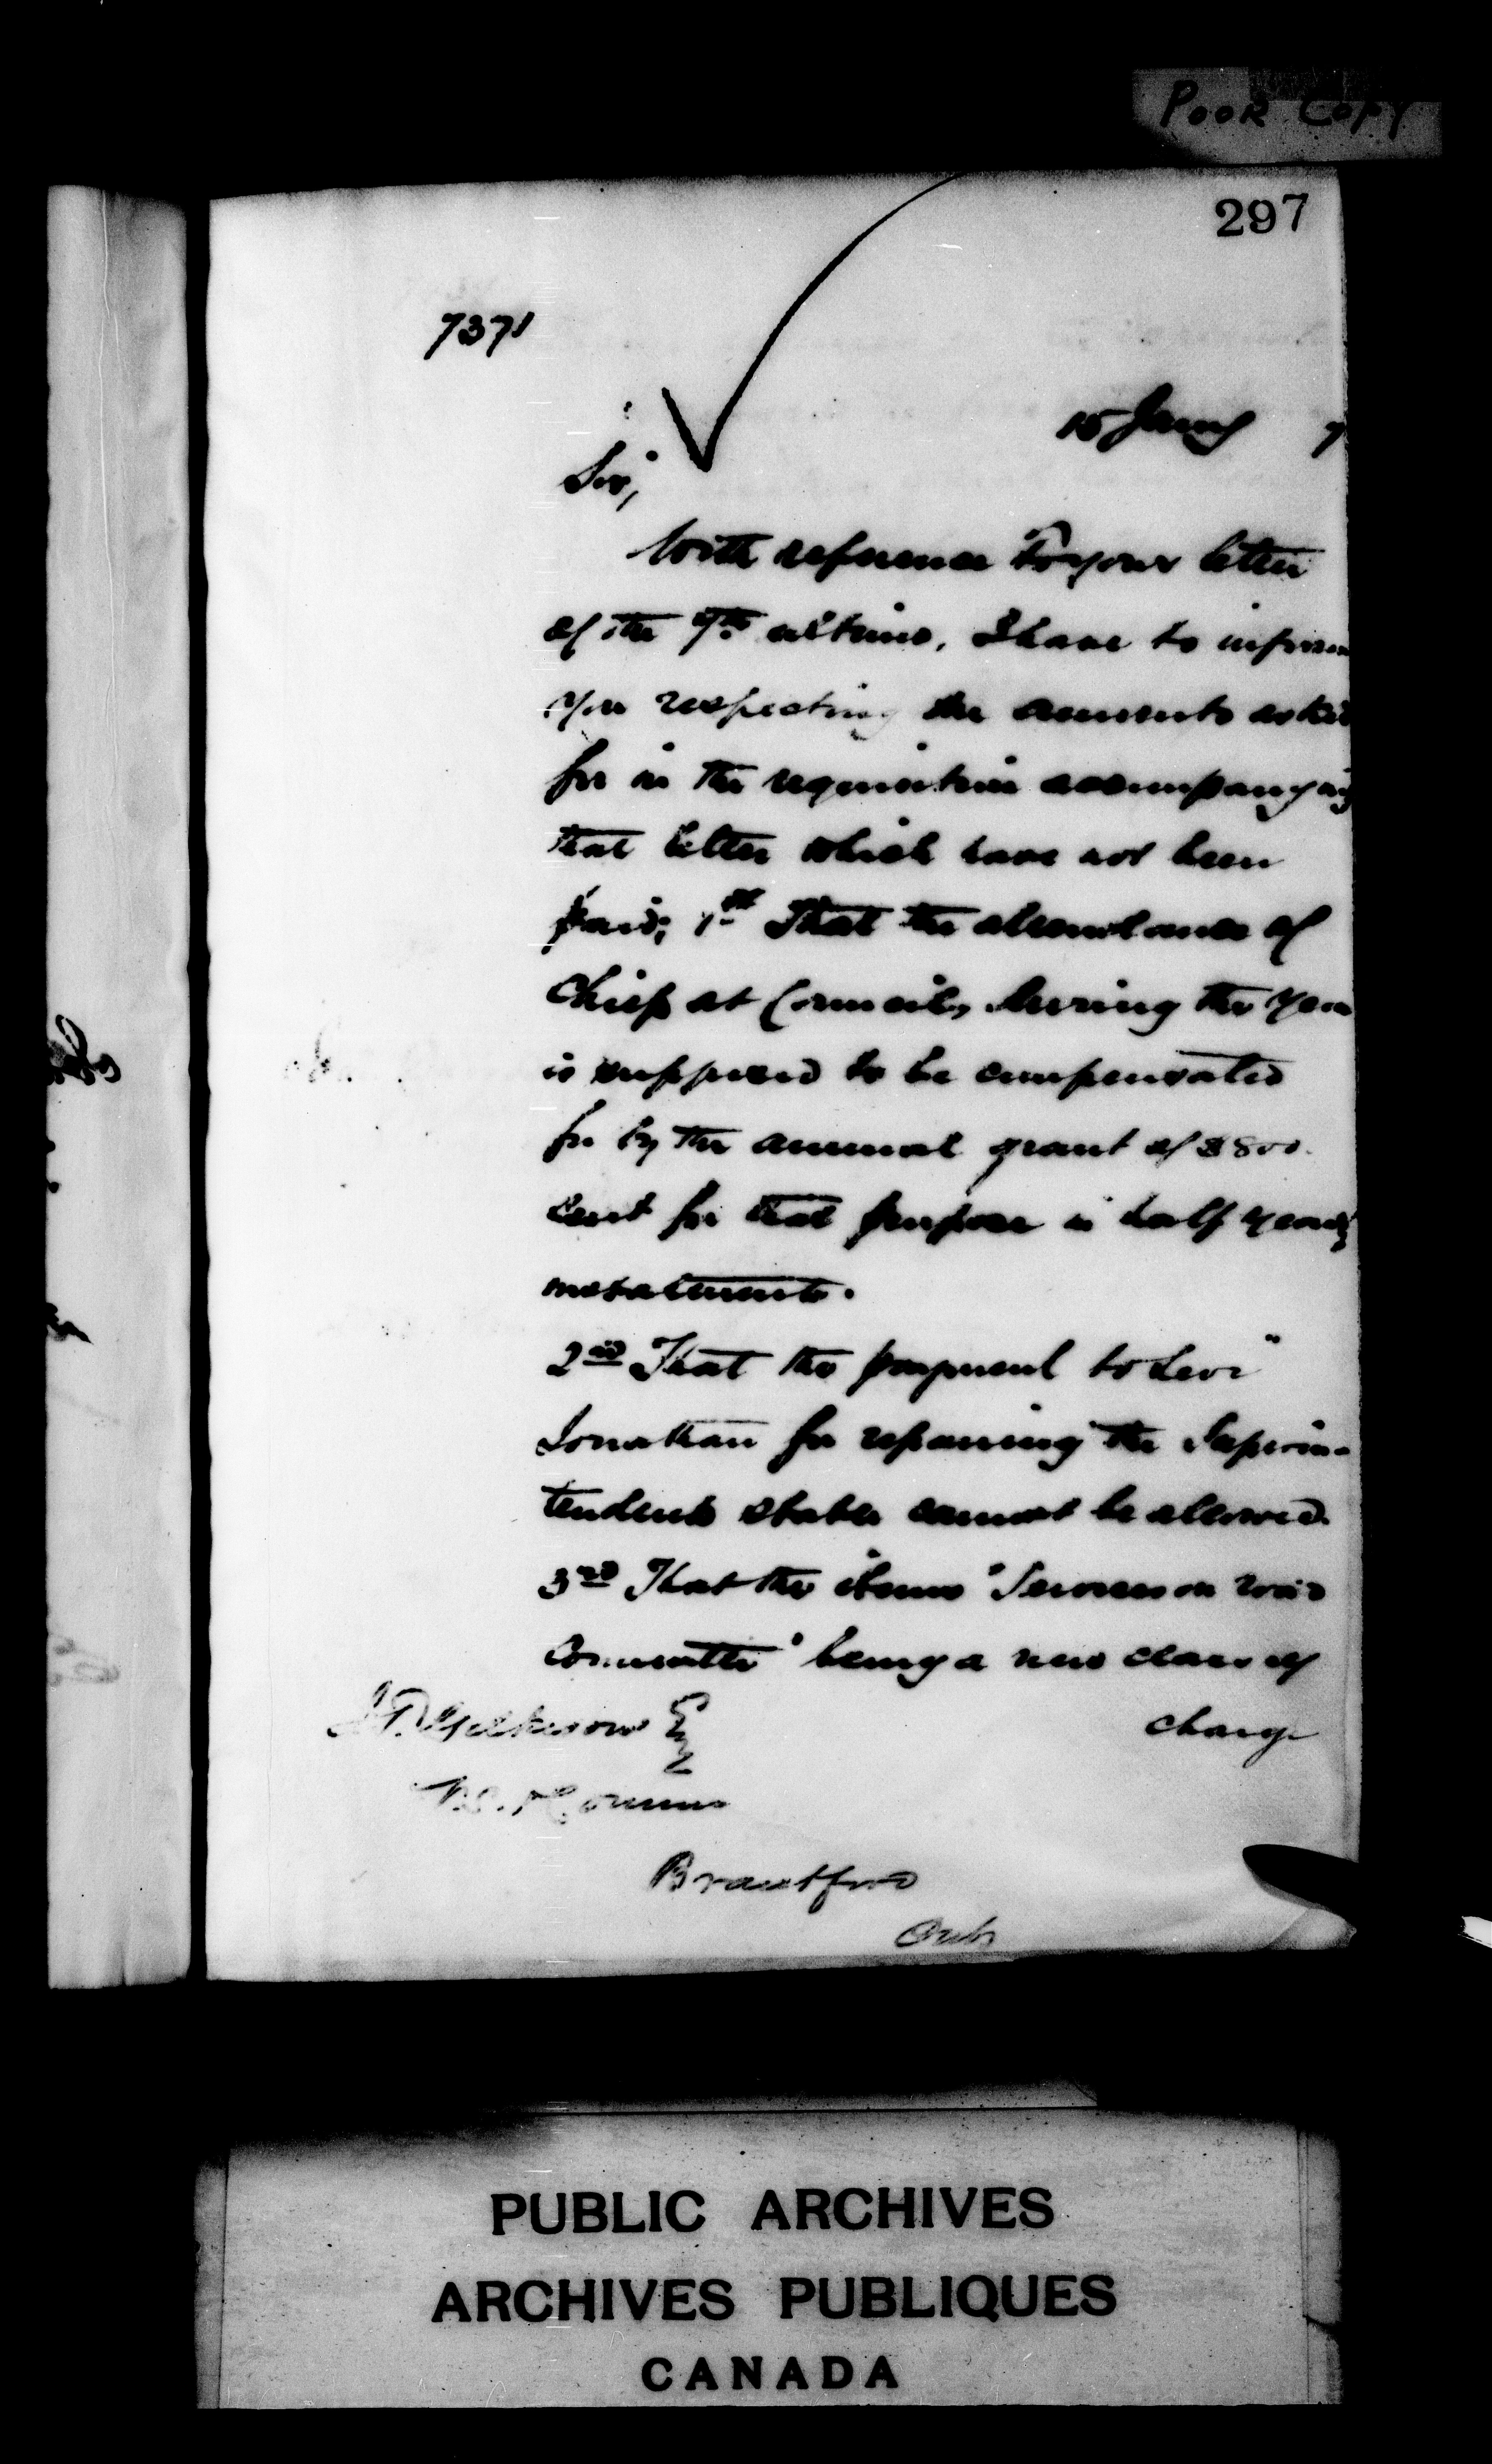 Poor Copy
297
7371
15 Jany 7
Sir,
With reference to your letter
of the 9th ultimo, I have to inform
you respecting the amounts asked
for in the requisition accompanying
that letter which have not been
paid; 1st That the attendance of
Chiefs at Councils during the year
is supposed to be compensated
for by the annual grant of $800.
sent for that purpose in half yearly
instalments.
2nd That the payment to Levi
Jonathan for repairing the Superin-
tendents stable cannot be allowed.
3rd That the items "Services on road
Committee" being a new class of
charge
J.T. Gilkison Esq
Brantford
Ont
PUBLIC ARCHIVES
ARCHIVES PUBLIQUES
CANADA